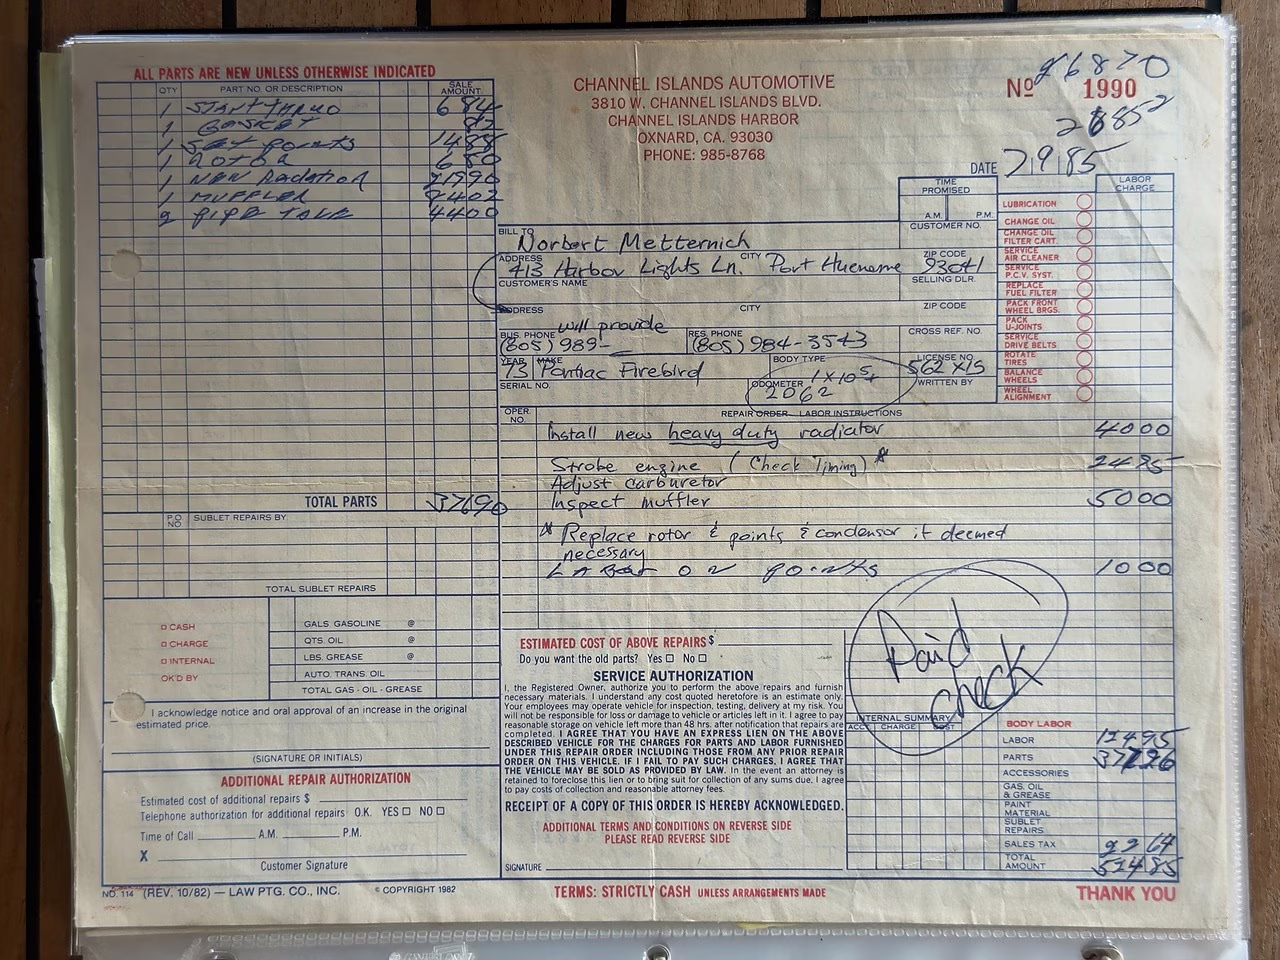 ALL PARTS ARE NEW UNLESS OTHERWISE INDICATED
QTY PART NO. OR DESCRIPTION SALE AMOUNT
1 684
1 GASKET
1 SET POINTS 1488
1 ROTOR 680
1 NEW RADATIOR
1 MUFFLER
2 PIPE 4400
TOTAL PARTS 37690
PO NO SUBLET REPAIRS BY
TOTAL SUBLET REPAIRS
CASH
CHARGE
INTERNAL
OK'D BY
GALS. GASOLINE @
QTS. OIL @
LBS. GREASE @
AUTO. TRANS. OIL
TOTAL GAS - OIL - GREASE
I acknowledge notice and oral approval of an increase in the original
estimated price.
(SIGNATURE OR INITIALS)
ADDITIONAL REPAIR AUTHORIZATION
Estimated cost of additional repairs $
Telephone authorization for additional repairs O.K. YES □ NO □
Time of Call A.M. P.M.
X
Customer Signature
NO. 114 (REV. 10/82) — LAW PTG. CO., INC. © COPYRIGHT 1982
CHANNEL ISLANDS AUTOMOTIVE
3810 W. CHANNEL ISLANDS BLVD.
CHANNEL ISLANDS HARBOR
OXNARD, CA. 93030
PHONE: 985-8768
No 1990
DATE 7 9 85
TIME PROMISED
A.M. P.M.
CUSTOMER NO.
BILL TO Norbert Metternich
ADDRESS 413 Harbor Lights Ln. CITY Port Hueneme ZIP CODE 93041
CUSTOMER'S NAME SELLING DLR.
ADDRESS CITY ZIP CODE
will provide
BUS. PHONE (805) 989- RES. PHONE (805) 984-3543 CROSS REF. NO.
YEAR 73 MAKE Pontiac Firebird BODY TYPE LICENSE NO. 562 XIS
SERIAL NO. ODOMETER 1 x 10⁵ + 2062 WRITTEN BY
LABOR CHARGE
LUBRICATION
CHANGE OIL
CHANGE OIL FILTER CART.
SERVICE AIR CLEANER
SERVICE P.C.V. SYST.
REPLACE FUEL FILTER
PACK FRONT WHEEL BRGS.
PACK U-JOINTS
SERVICE DRIVE BELTS
ROTATE TIRES
BALANCE WHEELS
WHEEL ALIGNMENT
OPER. NO. REPAIR ORDER - LABOR INSTRUCTIONS
Install new heavy duty radiator 4000
Strobe engine (Check Timing) * 2495
Adjust carburetor
Inspect muffler 5000
* Replace rotor & points & condensor if deemed
necessary
LABor ON POINTS 1000
Paid
check
ESTIMATED COST OF ABOVE REPAIRS $
Do you want the old parts? Yes □ No □
SERVICE AUTHORIZATION
I, the Registered Owner, authorize you to perform the above repairs and furnish
necessary materials. I understand any cost quoted heretofore is an estimate only.
Your employees may operate vehicle for inspection, testing, delivery at my risk. You
will not be responsible for loss or damage to vehicle or articles left in it. I agree to pay
reasonable storage on vehicle left more than 48 hrs. after notification that repairs are
completed. I AGREE THAT YOU HAVE AN EXPRESS LIEN ON THE ABOVE
DESCRIBED VEHICLE FOR THE CHARGES FOR PARTS AND LABOR FURNISHED
UNDER THIS REPAIR ORDER INCLUDING THOSE FROM ANY PRIOR REPAIR
ORDER ON THIS VEHICLE. IF I FAIL TO PAY SUCH CHARGES, I AGREE THAT
THE VEHICLE MAY BE SOLD AS PROVIDED BY LAW. In the event an attorney is
retained to foreclose this lien or to bring suit for collection of any sums due. I agree
to pay costs of collection and reasonable attorney fees.
RECEIPT OF A COPY OF THIS ORDER IS HEREBY ACKNOWLEDGED.
ADDITIONAL TERMS AND CONDITIONS ON REVERSE SIDE
PLEASE READ REVERSE SIDE
SIGNATURE
INTERNAL SUMMARY
ACCT. CHARGE COST
BODY LABOR
LABOR 12495
PARTS
ACCESSORIES
GAS. OIL & GREASE
PAINT MATERIAL
SUBLET REPAIRS
SALES TAX
TOTAL AMOUNT
TERMS: STRICTLY CASH UNLESS ARRANGEMENTS MADE
THANK YOU